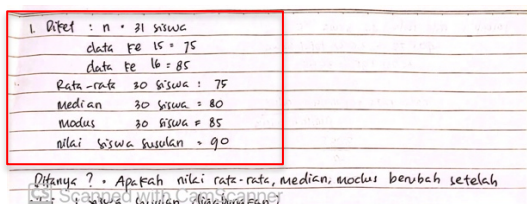 1. Diket : n = 31 siswa
data ke 15 = 75
data ke 16 = 85
Rata-rata 30 siswa : 75
Median 30 siswa = 80
modus 30 siswa = 85
nilai siswa susulan = 90
Ditanya ? • Apakah nilai rata-rata, median, modus berubah setelah
CS Scanned with CamScanner